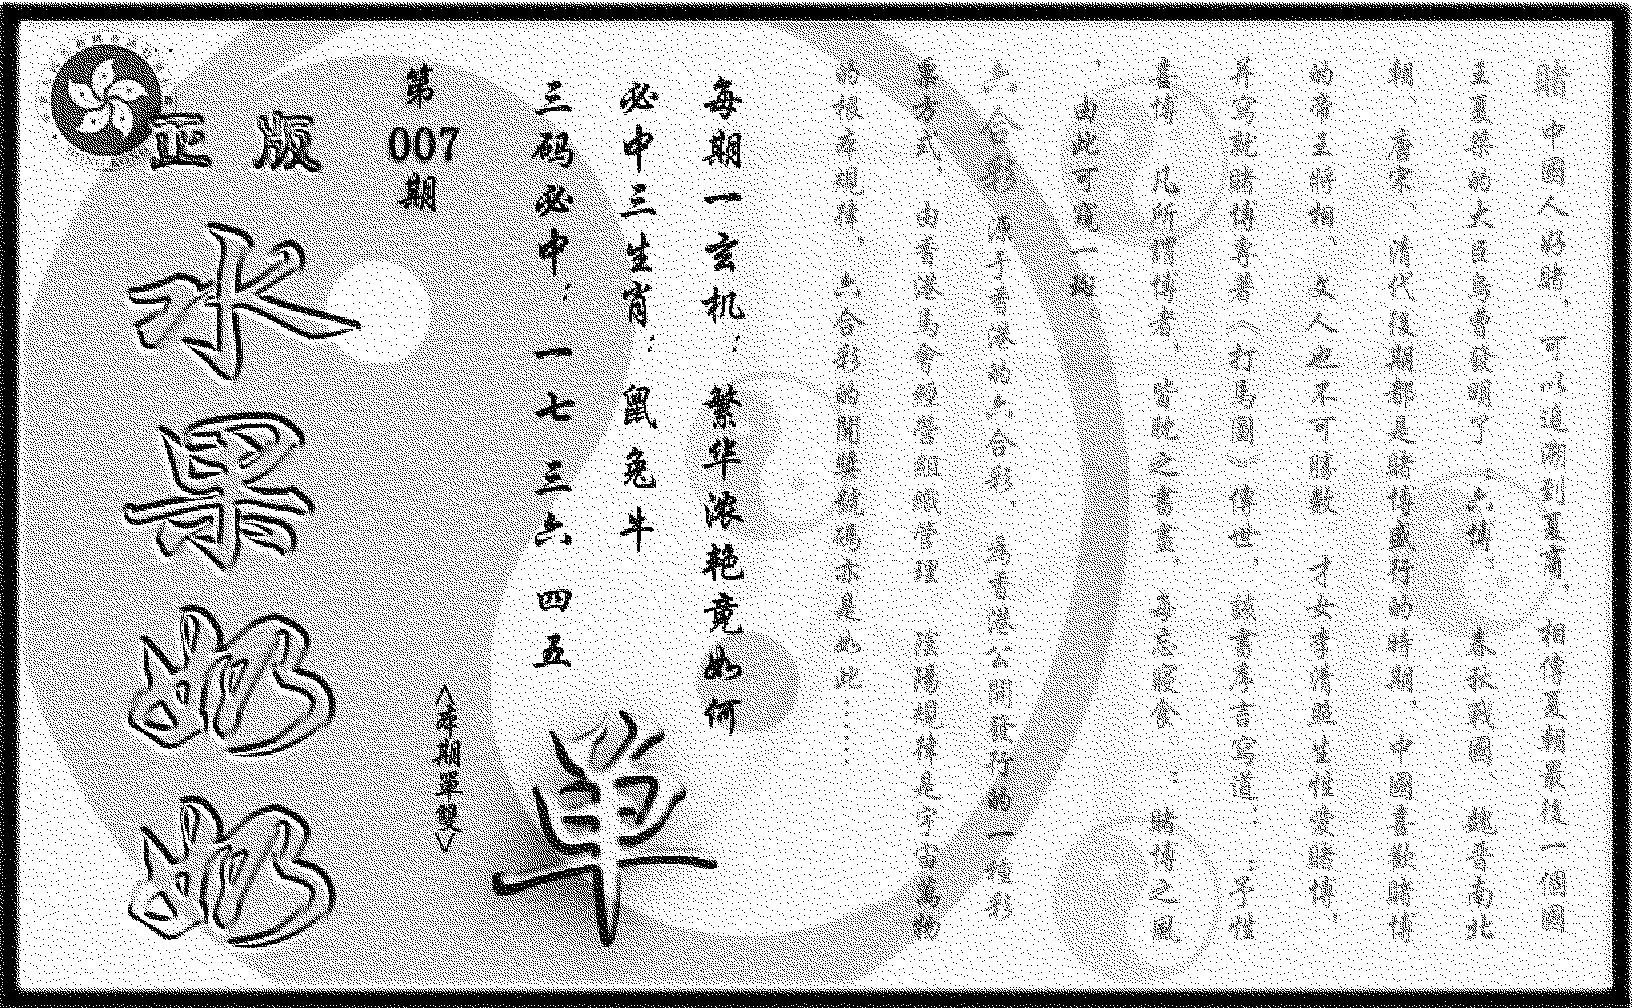 賭中國人好賭，可以追溯到夏商，相傳夏朝最後一個國
王夏桀的大臣烏曹發明了“六博”。春秋戰國、魏晉南北
朝、唐宋、清代後期都是賭博盛行的時期。中國喜歡賭博
的帝王將相、文人也不可勝數。才女李清照生性愛賭博，
并寫就賭博專著〈打馬圖〉傳世，該書序言寫道：“予性
喜博，凡所謂博者，皆耽之書畫，每忘寢食。”賭博之風
，由此可窺一斑
六合彩，源于香港的六合彩，爲香港公開發行的一種彩
票方式，由香港馬會經營組織管理。陰陽規律是宇宙萬物
的根本規律，六合彩的開獎號碼亦是如此……
每期一玄机：繁华浓艳竟如何
必中三生肖：鼠兔牛
三码必中：一七三六四五
单
第007期
〈本期單雙〉
正版
水果奶奶